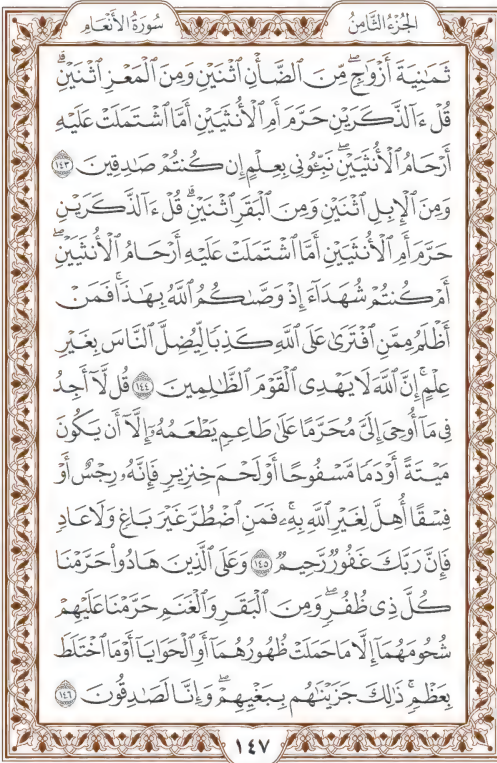 الجُزْءُ الثَّامِنُ
سُورَةُ الأَنْعَامِ
ثَمَٰنِيَةَ أَزْوَٰجٖۖ مِّنَ ٱلضَّأْنِ ٱثْنَيْنِ وَمِنَ ٱلْمَعْزِ ٱثْنَيْنِۗ
قُلْ ءَآلذَّكَرَيْنِ حَرَّمَ أَمِ ٱلْأُنثَيَيْنِ أَمَّا ٱشْتَمَلَتْ عَلَيْهِ
أَرْحَامُ ٱلْأُنثَيَيْنِۖ نَبِّـُٔونِي بِعِلْمٍ إِن كُنتُمْ صَٰدِقِينَ ١٤٣
وَمِنَ ٱلْإِبِلِ ٱثْنَيْنِ وَمِنَ ٱلْبَقَرِ ٱثْنَيْنِۗ قُلْ ءَآلذَّكَرَيْنِ
حَرَّمَ أَمِ ٱلْأُنثَيَيْنِ أَمَّا ٱشْتَمَلَتْ عَلَيْهِ أَرْحَامُ ٱلْأُنثَيَيْنِۖ
أَمْ كُنتُمْ شُهَدَآءَ إِذْ وَصَّىٰكُمُ ٱللَّهُ بِهَٰذَاۚ فَمَنْ
أَظْلَمُ مِمَّنِ ٱفْتَرَىٰ عَلَى ٱللَّهِ كَذِبًا لِّيُضِلَّ ٱلنَّاسَ بِغَيْرِ
عِلْمٍۚ إِنَّ ٱللَّهَ لَا يَهْدِي ٱلْقَوْمَ ٱلظَّٰلِمِينَ ١٤٤ قُل لَّآ أَجِدُ
فِي مَآ أُوحِيَ إِلَيَّ مُحَرَّمًا عَلَىٰ طَاعِمٍ يَطْعَمُهُۥٓ إِلَّآ أَن يَكُونَ
مَيْتَةً أَوْ دَمًا مَّسْفُوحًا أَوْ لَحْمَ خِنزِيرٍ فَإِنَّهُۥ رِجْسٌ أَوْ
فِسْقًا أُهِلَّ لِغَيْرِ ٱللَّهِ بِهِۦۚ فَمَنِ ٱضْطُرَّ غَيْرَ بَاغٍ وَلَا عَادٍ
فَإِنَّ رَبَّكَ غَفُورٌ رَّحِيمٌ ١٤٥ وَعَلَى ٱلَّذِينَ هَادُوا۟ حَرَّمْنَا
كُلَّ ذِي ظُفُرٍۖ وَمِنَ ٱلْبَقَرِ وَٱلْغَنَمِ حَرَّمْنَا عَلَيْهِمْ
شُحُومَهُمَآ إِلَّا مَا حَمَلَتْ ظُهُورُهُمَآ أَوِ ٱلْحَوَايَآ أَوْ مَا ٱخْتَلَطَ
بِعَظْمٍۚ ذَٰلِكَ جَزَيْنَٰهُم بِبَغْيِهِمْۖ وَإِنَّا لَصَٰدِقُونَ ١٤٦
١٤٧